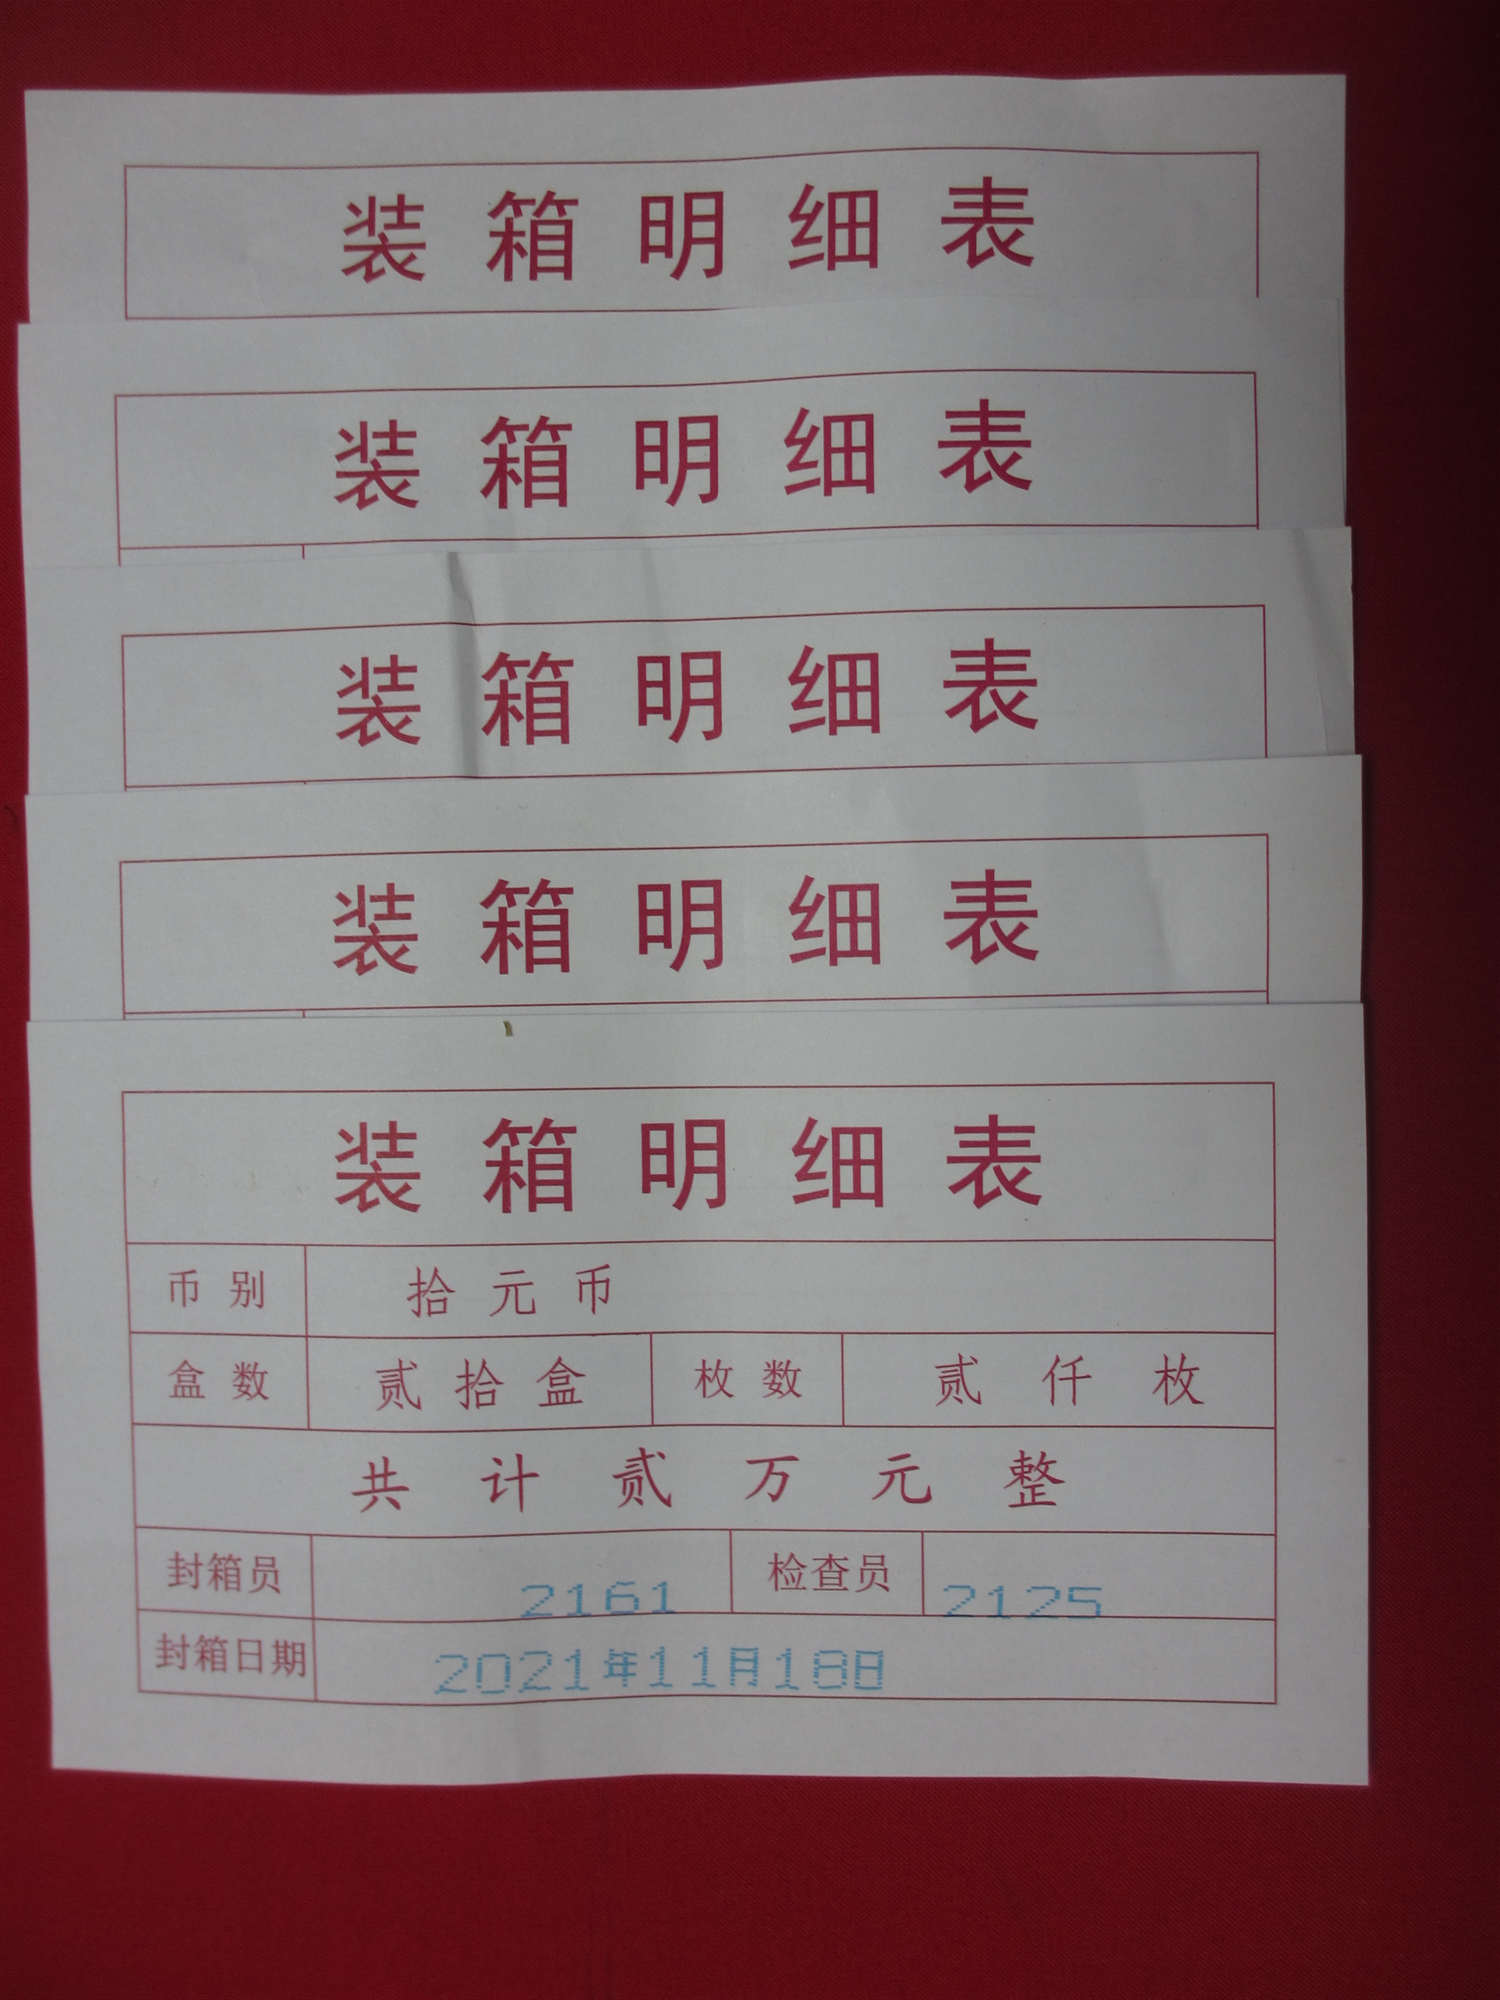 装箱明细表
装箱明细表
装箱明细表
装箱明细表
装箱明细表
币别 拾元币
盒数 贰拾盒 枚数 贰仟枚
共计贰万元整
封箱员 2161 检查员 2125
封箱日期 2021年11月18日